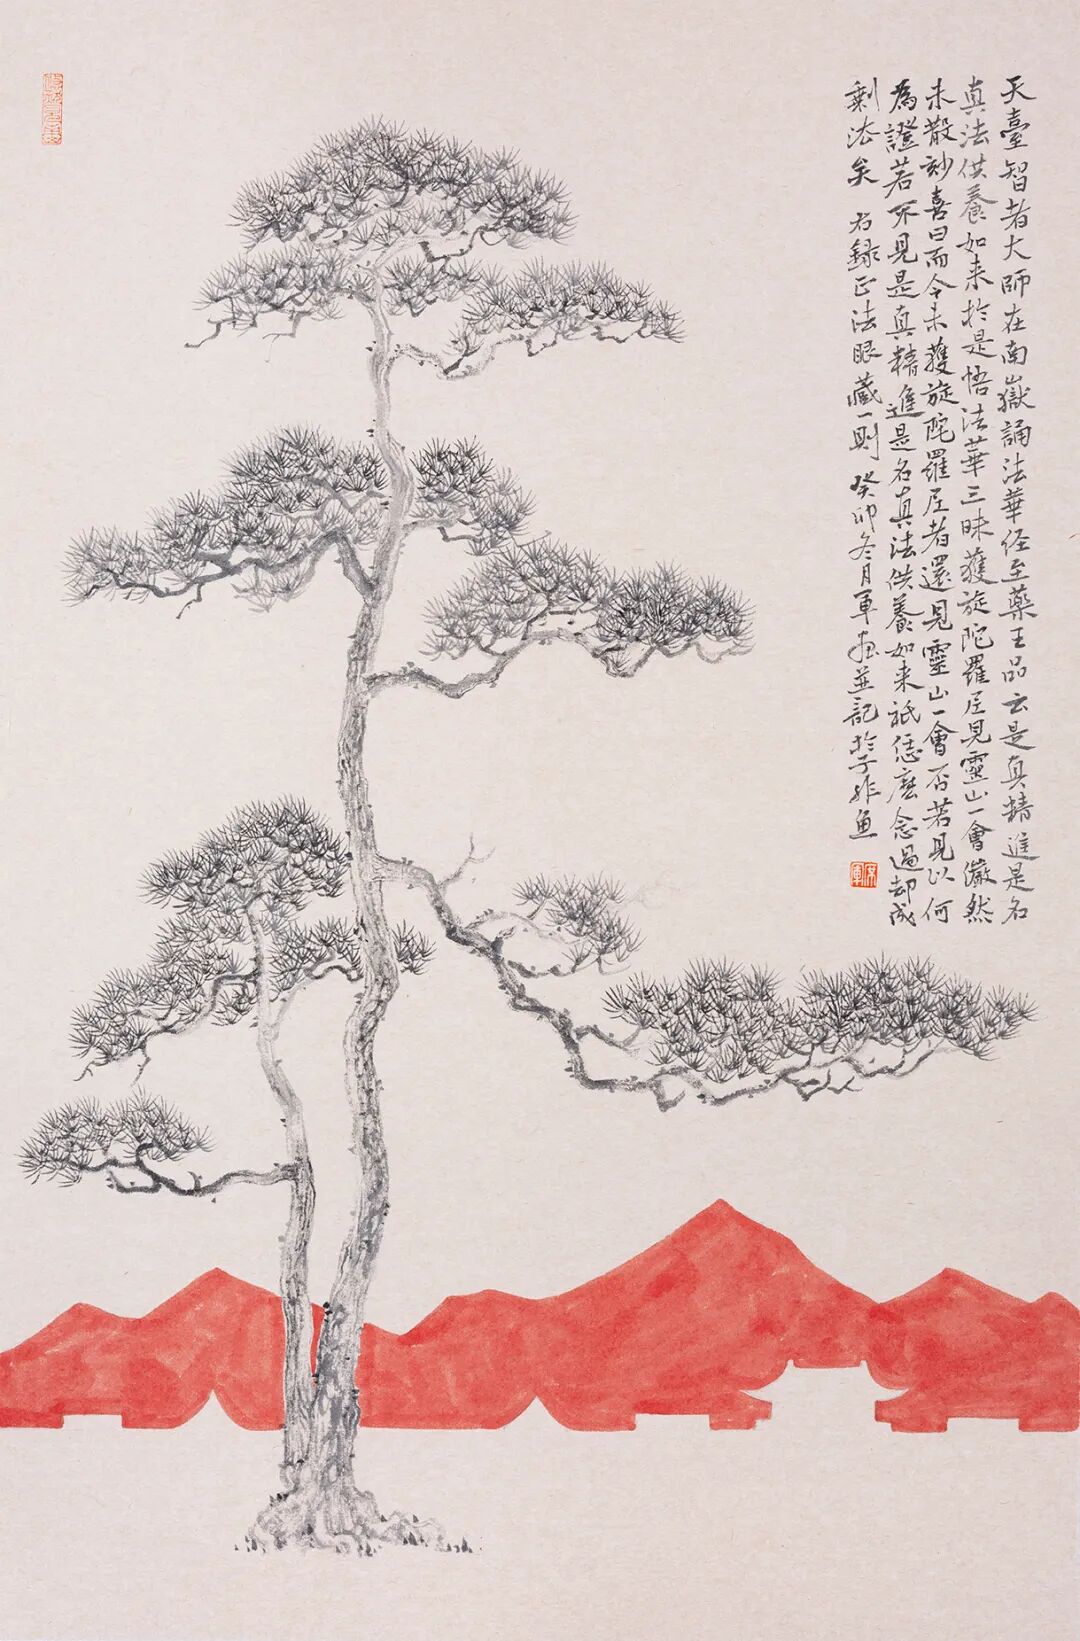 天臺智者大師在南嶽誦法華经至藥王品云是真精進是名
真法供養如来於是悟法華三昧獲旋陀羅尼見靈山一會儼然
未散妙喜曰而今未獲旋陀羅尼者還見靈山一會否若見以何
為證若不見是真精進是名真法供養如来祇恁麽念過却成
剩法矣 右録正法眼藏一則 癸卯冬月軍画並記於子非鱼